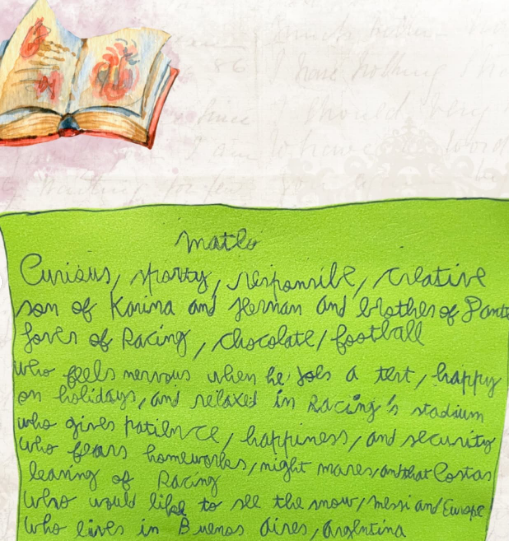 mateo
Curious, sporty, responsible, creative
son of Karina and Hernan and brother of Dante
lover of Racing, chocolate, football
who feels nervous when he does a test, happy
on holidays, and relaxed in Racing's stadium
who gives patience, happiness, and security
who fears homeworks, night mares, and that Costas
leaving of Racing
who would like to see the snow, Messi and Europe
who lives in Buenos Aires, Argentina